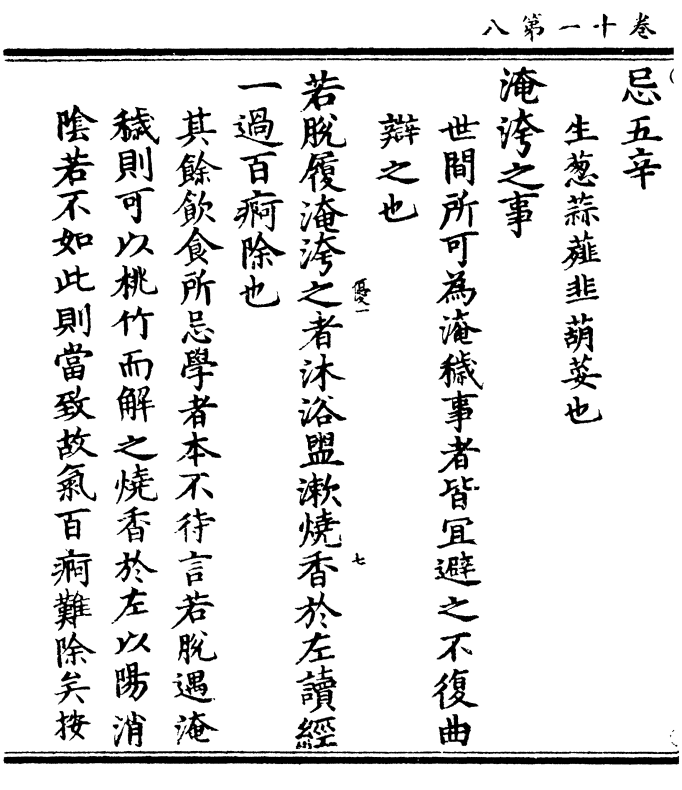 卷十一第八
忌五辛
生葱蒜薤韭葫荽也
淹洿之事
世間所可為淹穢事者皆宜避之不復曲
辯之也
若脫履淹洿之者沐浴盥漱燒香於左讀經
一過百痾除也
其餘飲食所忌學者本不待言若脫遇淹
穢則可以桃竹而解之燒香於左以陽消
陰若不如此則當致故氣百痾難除矣按
七